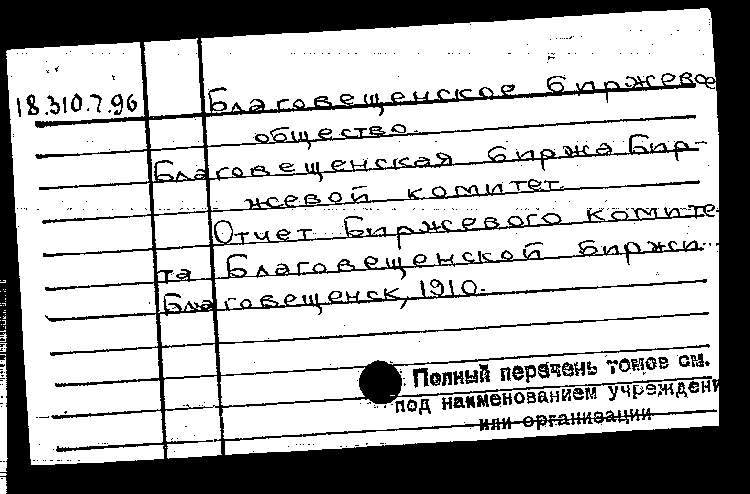 18.310.7.96 Благовещенское биржевое
общество.
Благовещенская биржа Бир-
жевой комитет.
Отчет Биржевого комите-
та Благовещенской биржи...
Благовещенск, 1910.
Полный перечень томов см.
под наименованием учрежден
или организации